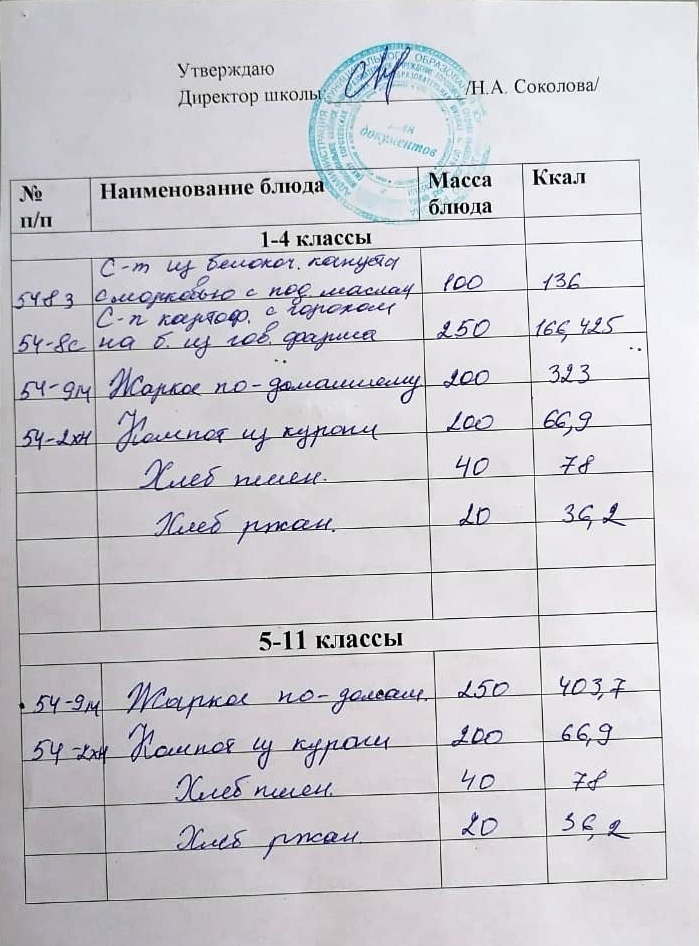 Утверждаю
Директор школы /Н.А. Соколова/
документов
№ п/п Наименование блюда Масса блюда Ккал
1-4 классы
С-т из белокоч. капуста
548з с морковью с под. маслам 100 136
С-п картоф. с горохом
54-8с на б. из гов. фарша 250 166,425
54-9м Жаркое по-домашнему 200 323
54-2хн Компот из кураги 200 66,9
Хлеб пшен. 40 78
Хлеб ржан. 20 36,2
5-11 классы
54-9м Жаркое по-домам. 250 403,7
54-2хн Компот из кураги 200 66,9
Хлеб пшен. 40 78
Хлеб ржан. 20 36,2